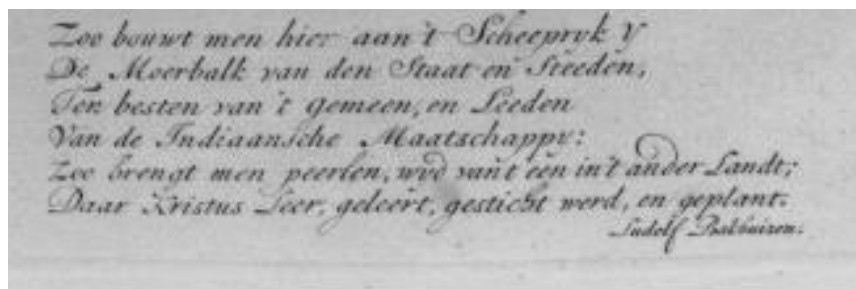 Zoo bouwt men hier aan't Scheepryk Y
De Moerbalk van den Staat en Steeden,
Ten besten van't gemeen, en Leeden
Van de Indiaansche Maatschappy:
Zoo brengt men peerlen, wyd van't een in't ander Landt;
Daar Kristus Leer, geleert, gesticht werd, en geplant.
Ludolf Bakhuizen.